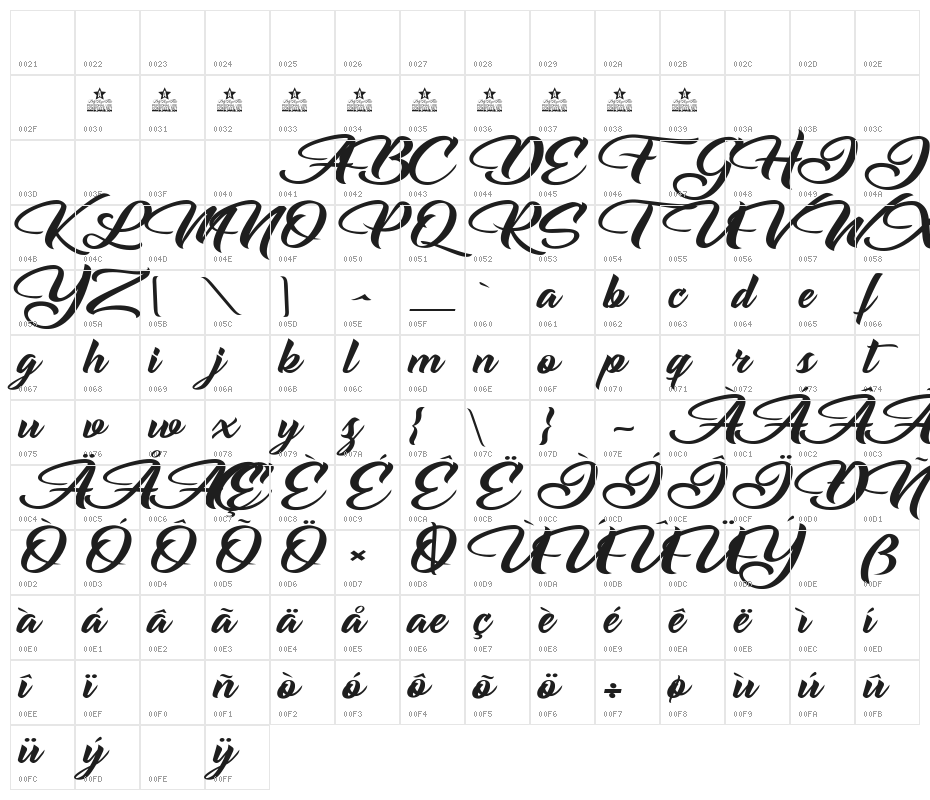 0021 0022 0023 0024 0025 0026 0027 0028 0029 002A 002B 002C 002D 002E
002F 0030 0031 0032 0033 0034 0035 0036 0037 0038 0039 003A 003B 003C
A B C D E F G H I J
003D 003E 003F 0040 0041 0042 0043 0044 0045 0046 0047 0048 0049 004A
K L M N O P Q R S T U V W X
004B 004C 004D 004E 004F 0050 0051 0052 0053 0054 0055 0056 0057 0058
Y Z [ \ ] ^ _ ` a b c d e f
0059 005A 005B 005C 005D 005E 005F 0060 0061 0062 0063 0064 0065 0066
g h i j k l m n o p q r s t
0067 0068 0069 006A 006B 006C 006D 006E 006F 0070 0071 0072 0073 0074
u v w x y z { \ } ~ À Á Â Ã
0075 0076 0077 0078 0079 007A 007B 007C 007D 007E 00C0 00C1 00C2 00C3
Ä Å Æ Ç È É Ê Ë Ì Í Î Ï Ð Ñ
00C4 00C5 00C6 00C7 00C8 00C9 00CA 00CB 00CC 00CD 00CE 00CF 00D0 00D1
Ò Ó Ô Õ Ö × Ø Ù Ú Û Ü Ý ß
00D2 00D3 00D4 00D5 00D6 00D7 00D8 00D9 00DA 00DB 00DC 00DD 00DE 00DF
à á â ã ä å ae ç è é ê ë ì í
00E0 00E1 00E2 00E3 00E4 00E5 00E6 00E7 00E8 00E9 00EA 00EB 00EC 00ED
î ï ñ ò ó ô õ ö ÷ ø ù ú û
00EE 00EF 00F0 00F1 00F2 00F3 00F4 00F5 00F6 00F7 00F8 00F9 00FA 00FB
ü ý ÿ
00FC 00FD 00FE 00FF